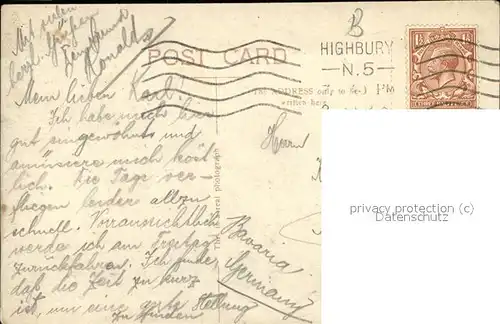 Mit vielen
herzl. Grüßen
Dein Freund
Ronald
POST CARD
B
HIGHBURY
N.5
PM
THE ADDRESS only to be
written here
Mein lieben Karl.
Ich habe mich hier
gut eingewöhnt und
amüsiere mich köst
lich. Die Tage ver-
fliegen leider allzu
schnell. Voraussichtlich
werde ich am Freitag
zurückfahren. Ich finde,
daß die Zeit zu kurz
ist, um eine gute Stellung
zu finden
This is a real photograph
Herrn
Bavaria
Germany
privacy protection (c)
Datenschutz